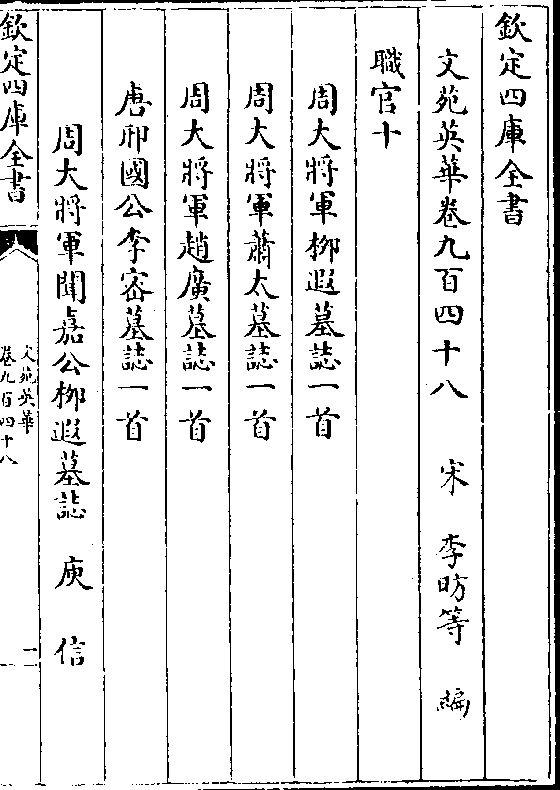 欽定四庫全書
文苑英華卷九百四十八 宋 李昉等 編
職官十
周大將軍柳遐墓誌一首
周大將軍蕭太墓誌一首
周大將軍趙廣墓誌一首
唐邢國公李密墓誌一首
周大將軍聞嘉公柳遐墓誌 庾 信
欽定四庫全書
文苑英華
卷九百四十八
一